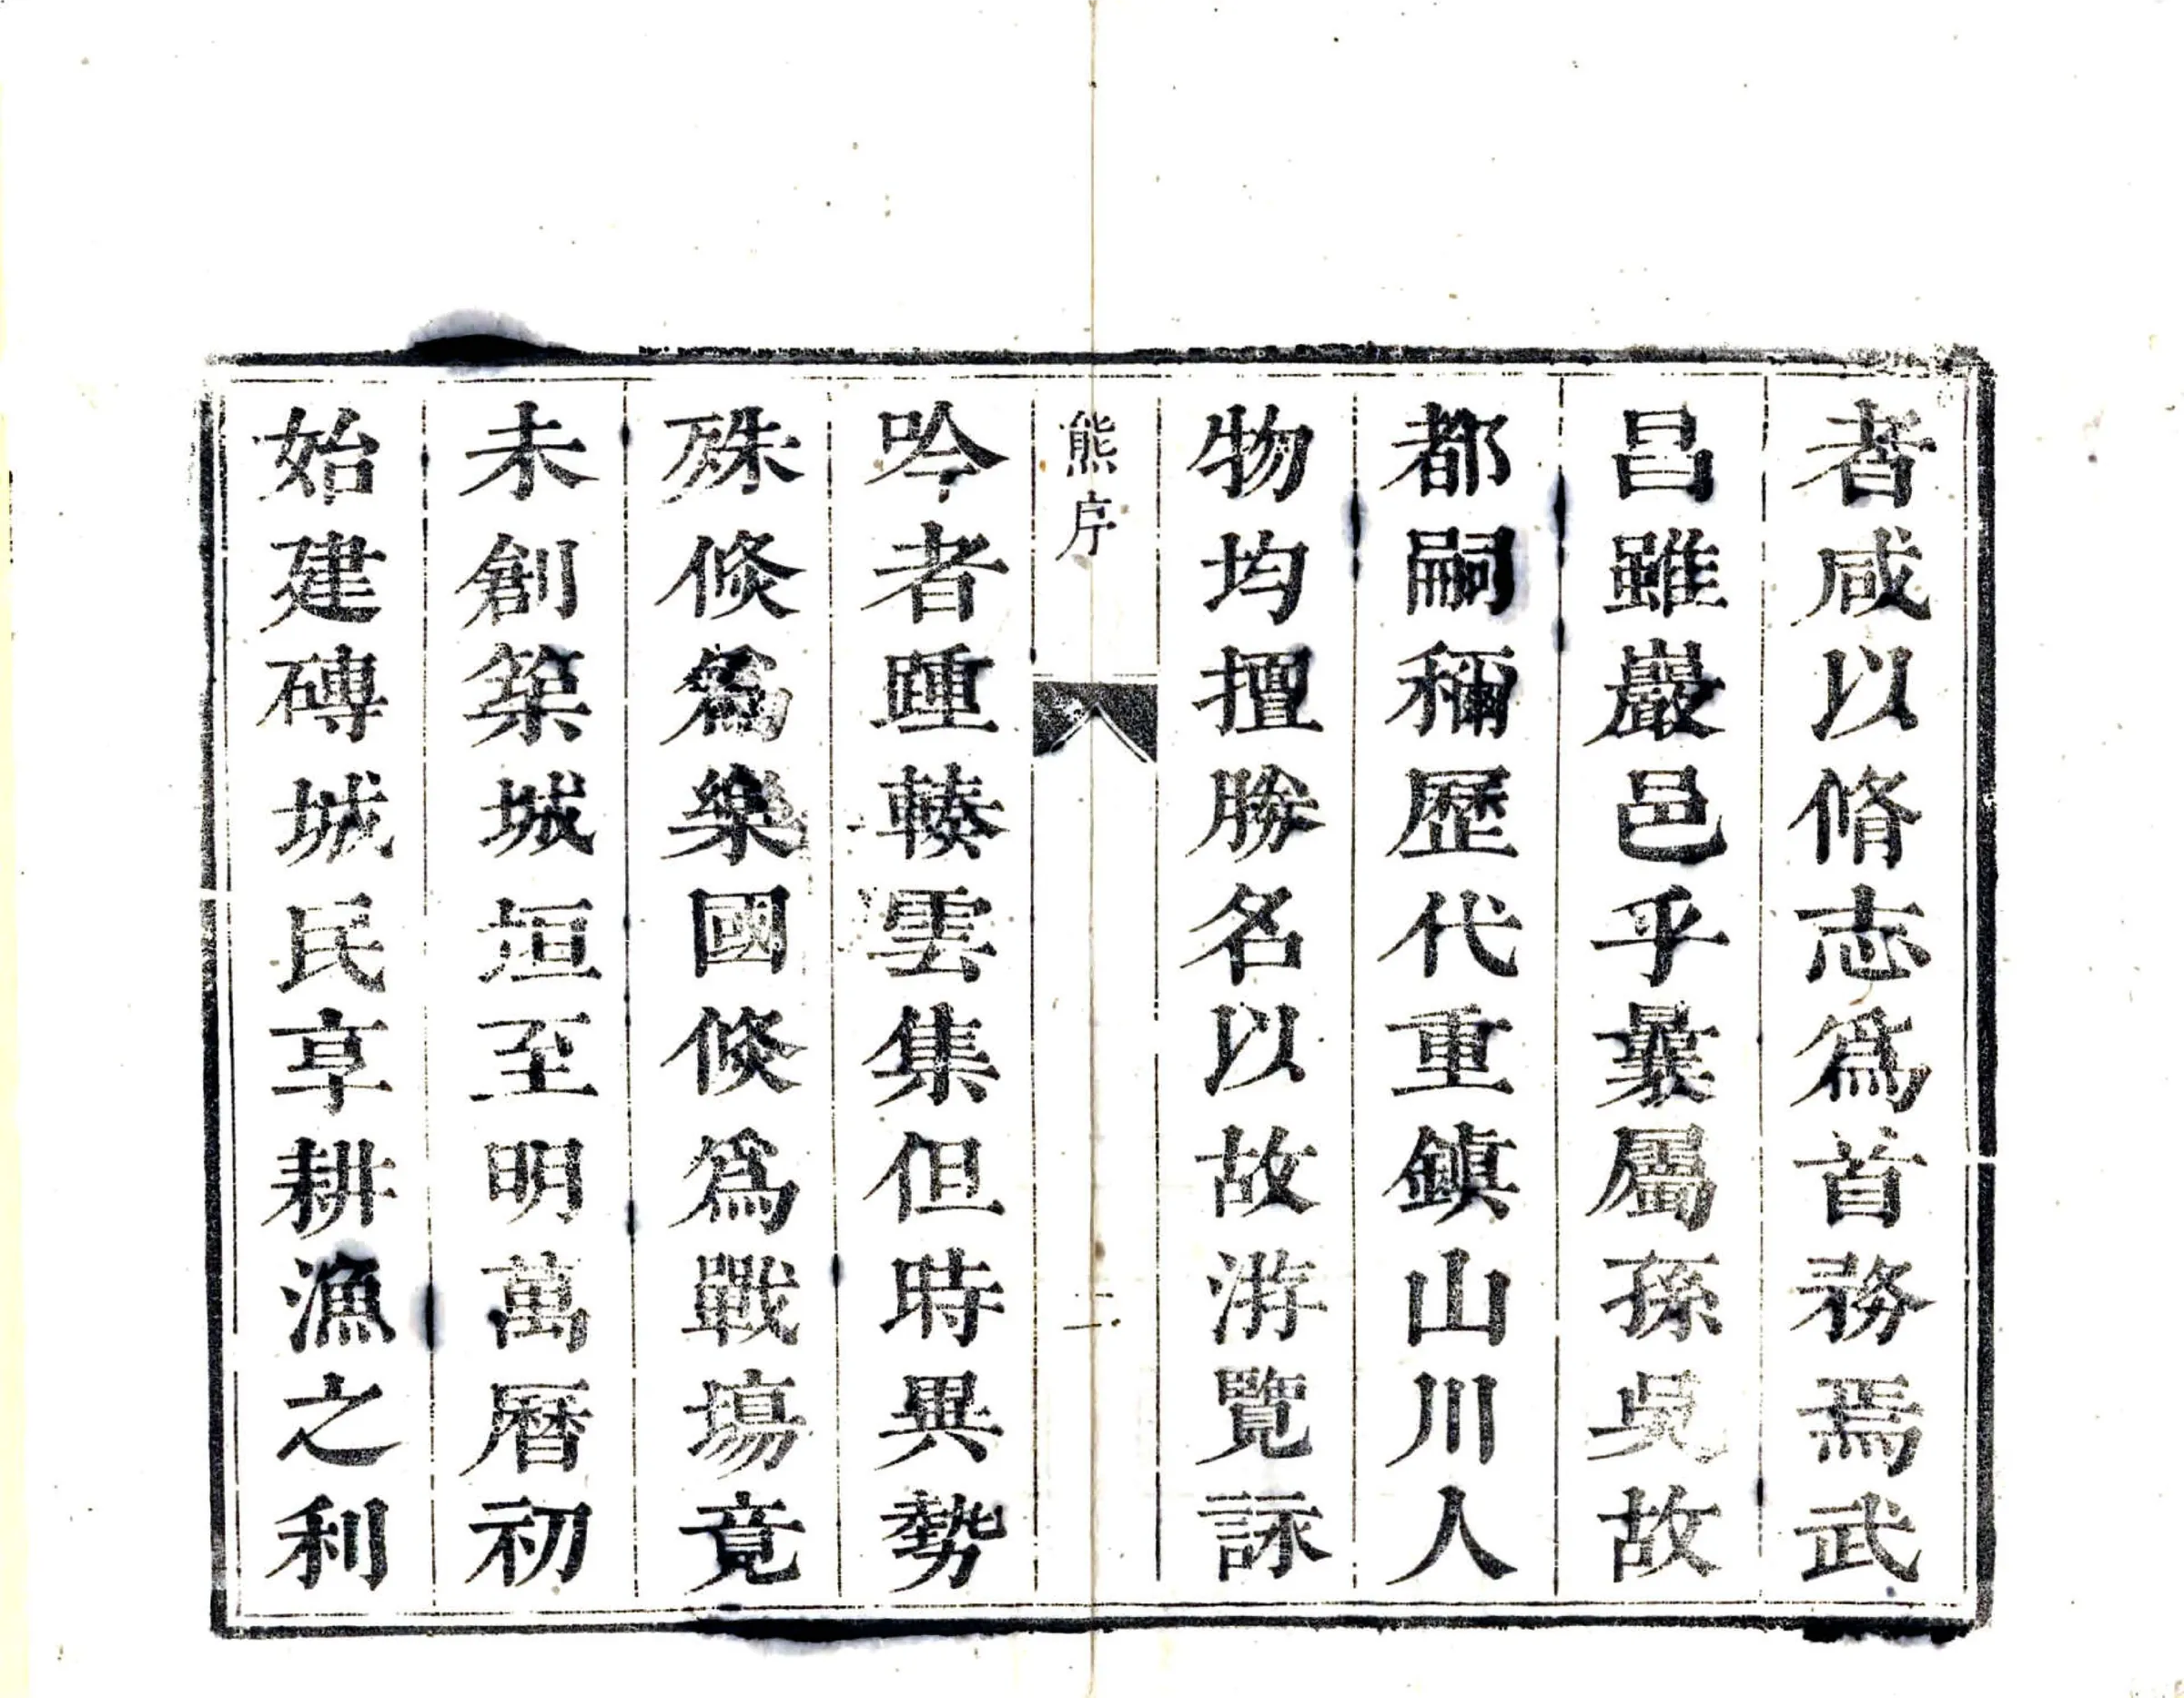 者咸以脩志爲首務焉武
昌雖巖邑乎曩屬孫吳故
都嗣稱歷代重鎮山川人
物均擅勝名以故游覽詠
熊序
二
吟者踵輳雲集但時異勢
殊倐爲樂國倐爲戰塲竟
未創築城垣至明萬曆初
始建磚城民享耕漁之利